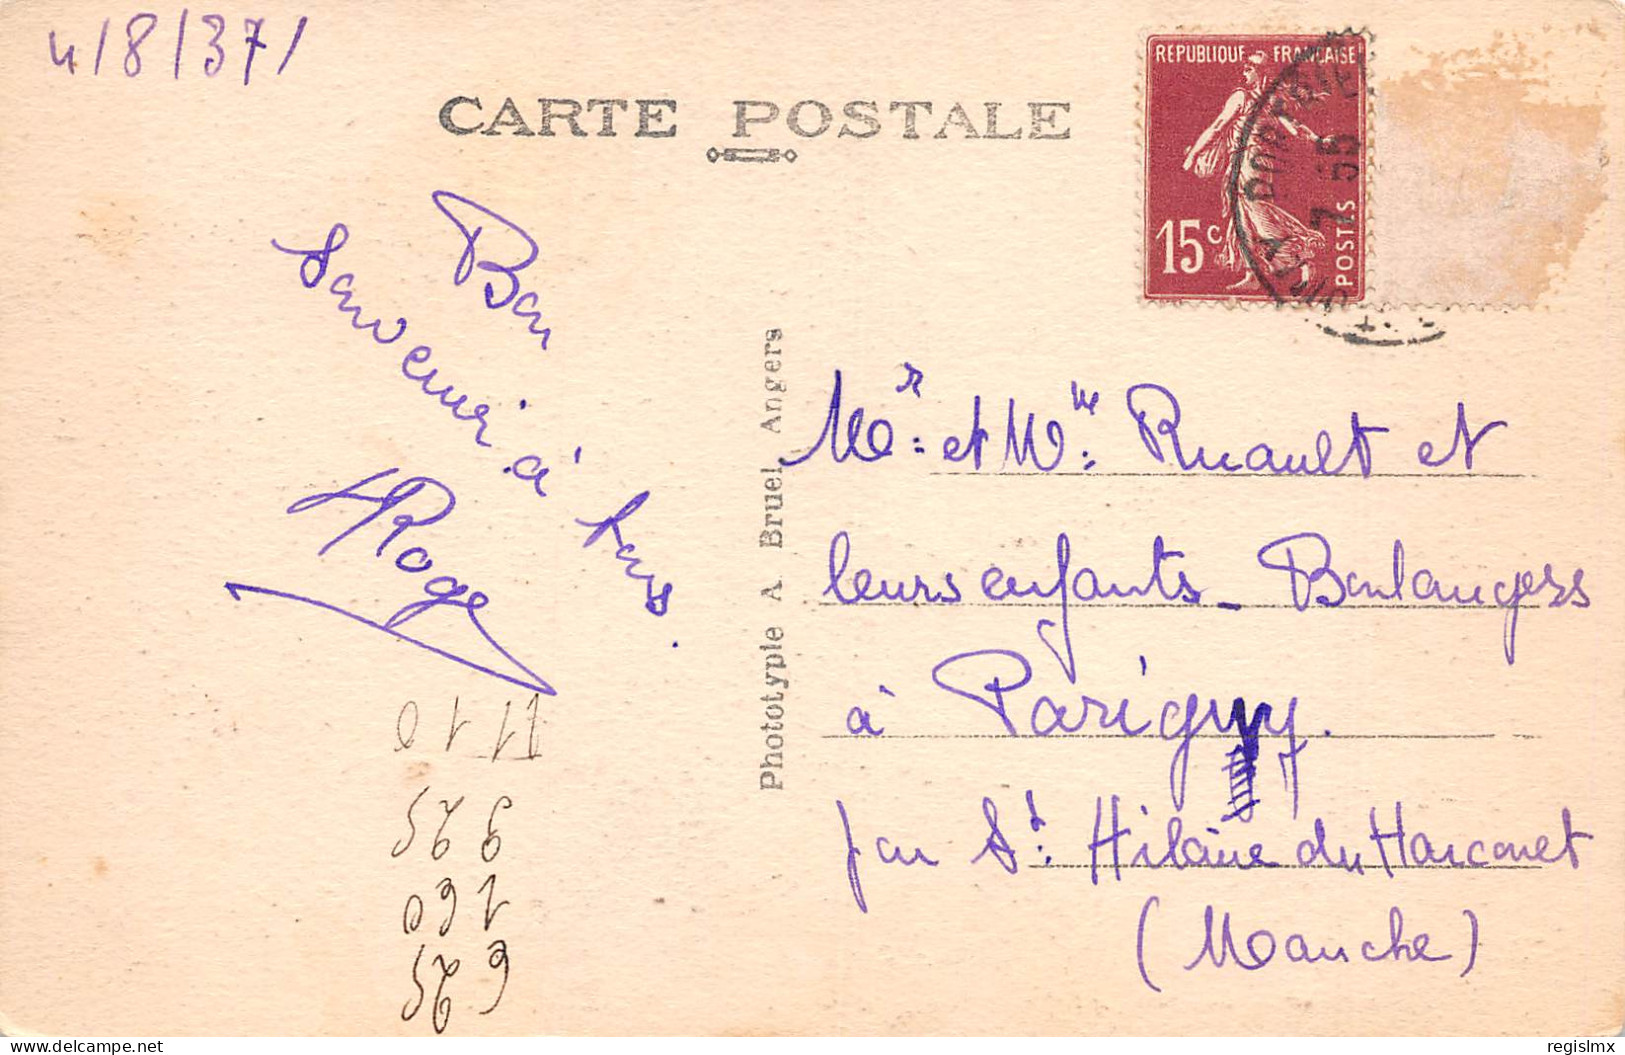 4/8/37/
CARTE POSTALE
REPUBLIQUE FRANÇAISE
15c
POSTES
7 55
Bon
Souvenir à
tous.
Roge
Phototypie A Bruel Angers
Mr. et Mme. Ruault et
leurs enfants - Boulangers
à Parigny.
par St. Hilaire du Harcouet
(Manche)
11 10
9 25
1 60
6 25
www.delcampe.net
regislmx